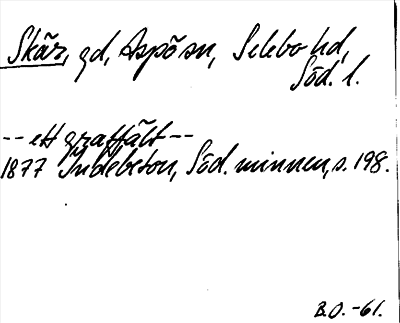 Skär, gd, Aspö sn, Selebo hd,
Söd. l.
-- ett graffält --
1877 Indebetou, Söd. minnen, s. 198.
B.O. -61.